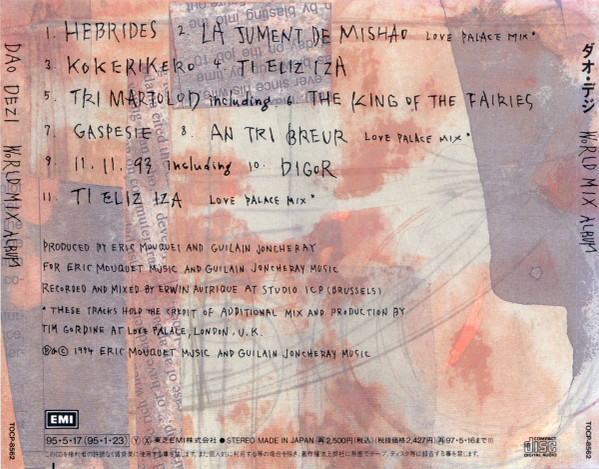 1. HEBRIDES 2. LA JUMENT DE MISHAO LOVE PALACE MIX*
3. KOKERIKERO 4. TI ELIZ IZA
5. TRI MARTOLOD including 6. THE KING OF THE FAIRIES
7. GASPESIE 8. AN TRI BREUR LOVE PALACE MIX*
9. 11.11.93 including 10. DIGOR
11. TI ELIZ IZA LOVE PALACE MIX*
PRODUCED BY ERIC MOUQUET AND GUILAIN JONCHERAY
FOR ERIC MOUQUET MUSIC AND GUILAIN JONCHERAY MUSIC
RECORDED AND MIXED BY ERWIN AUTRIQUE AT STUDIO ICP (BRUSSELS)
* THESE TRACKS HOLD THE CREDIT OF ADDITIONAL MIX AND PRODUCTION BY
TIM GORDINE AT LOVE PALACE, LONDON. U.K.
℗&© 1994 ERIC MOUQUET MUSIC AND GUILAIN JONCHERAY MUSIC
EMI
95・5・17 (95・1・23) Ⓨ Ⓧ 東芝EMI株式会社 ●STEREO MADE IN JAPAN 再2,500円(税込) (税抜価格2,427円) 再97・5・16まで
COMPACT
disc
DIGITAL AUDIO
DAO DEZI WORLD MIX ALBUM
TOCP-8562
ダオ・デジ WORLD MIX ALBUM
TOCP-8562